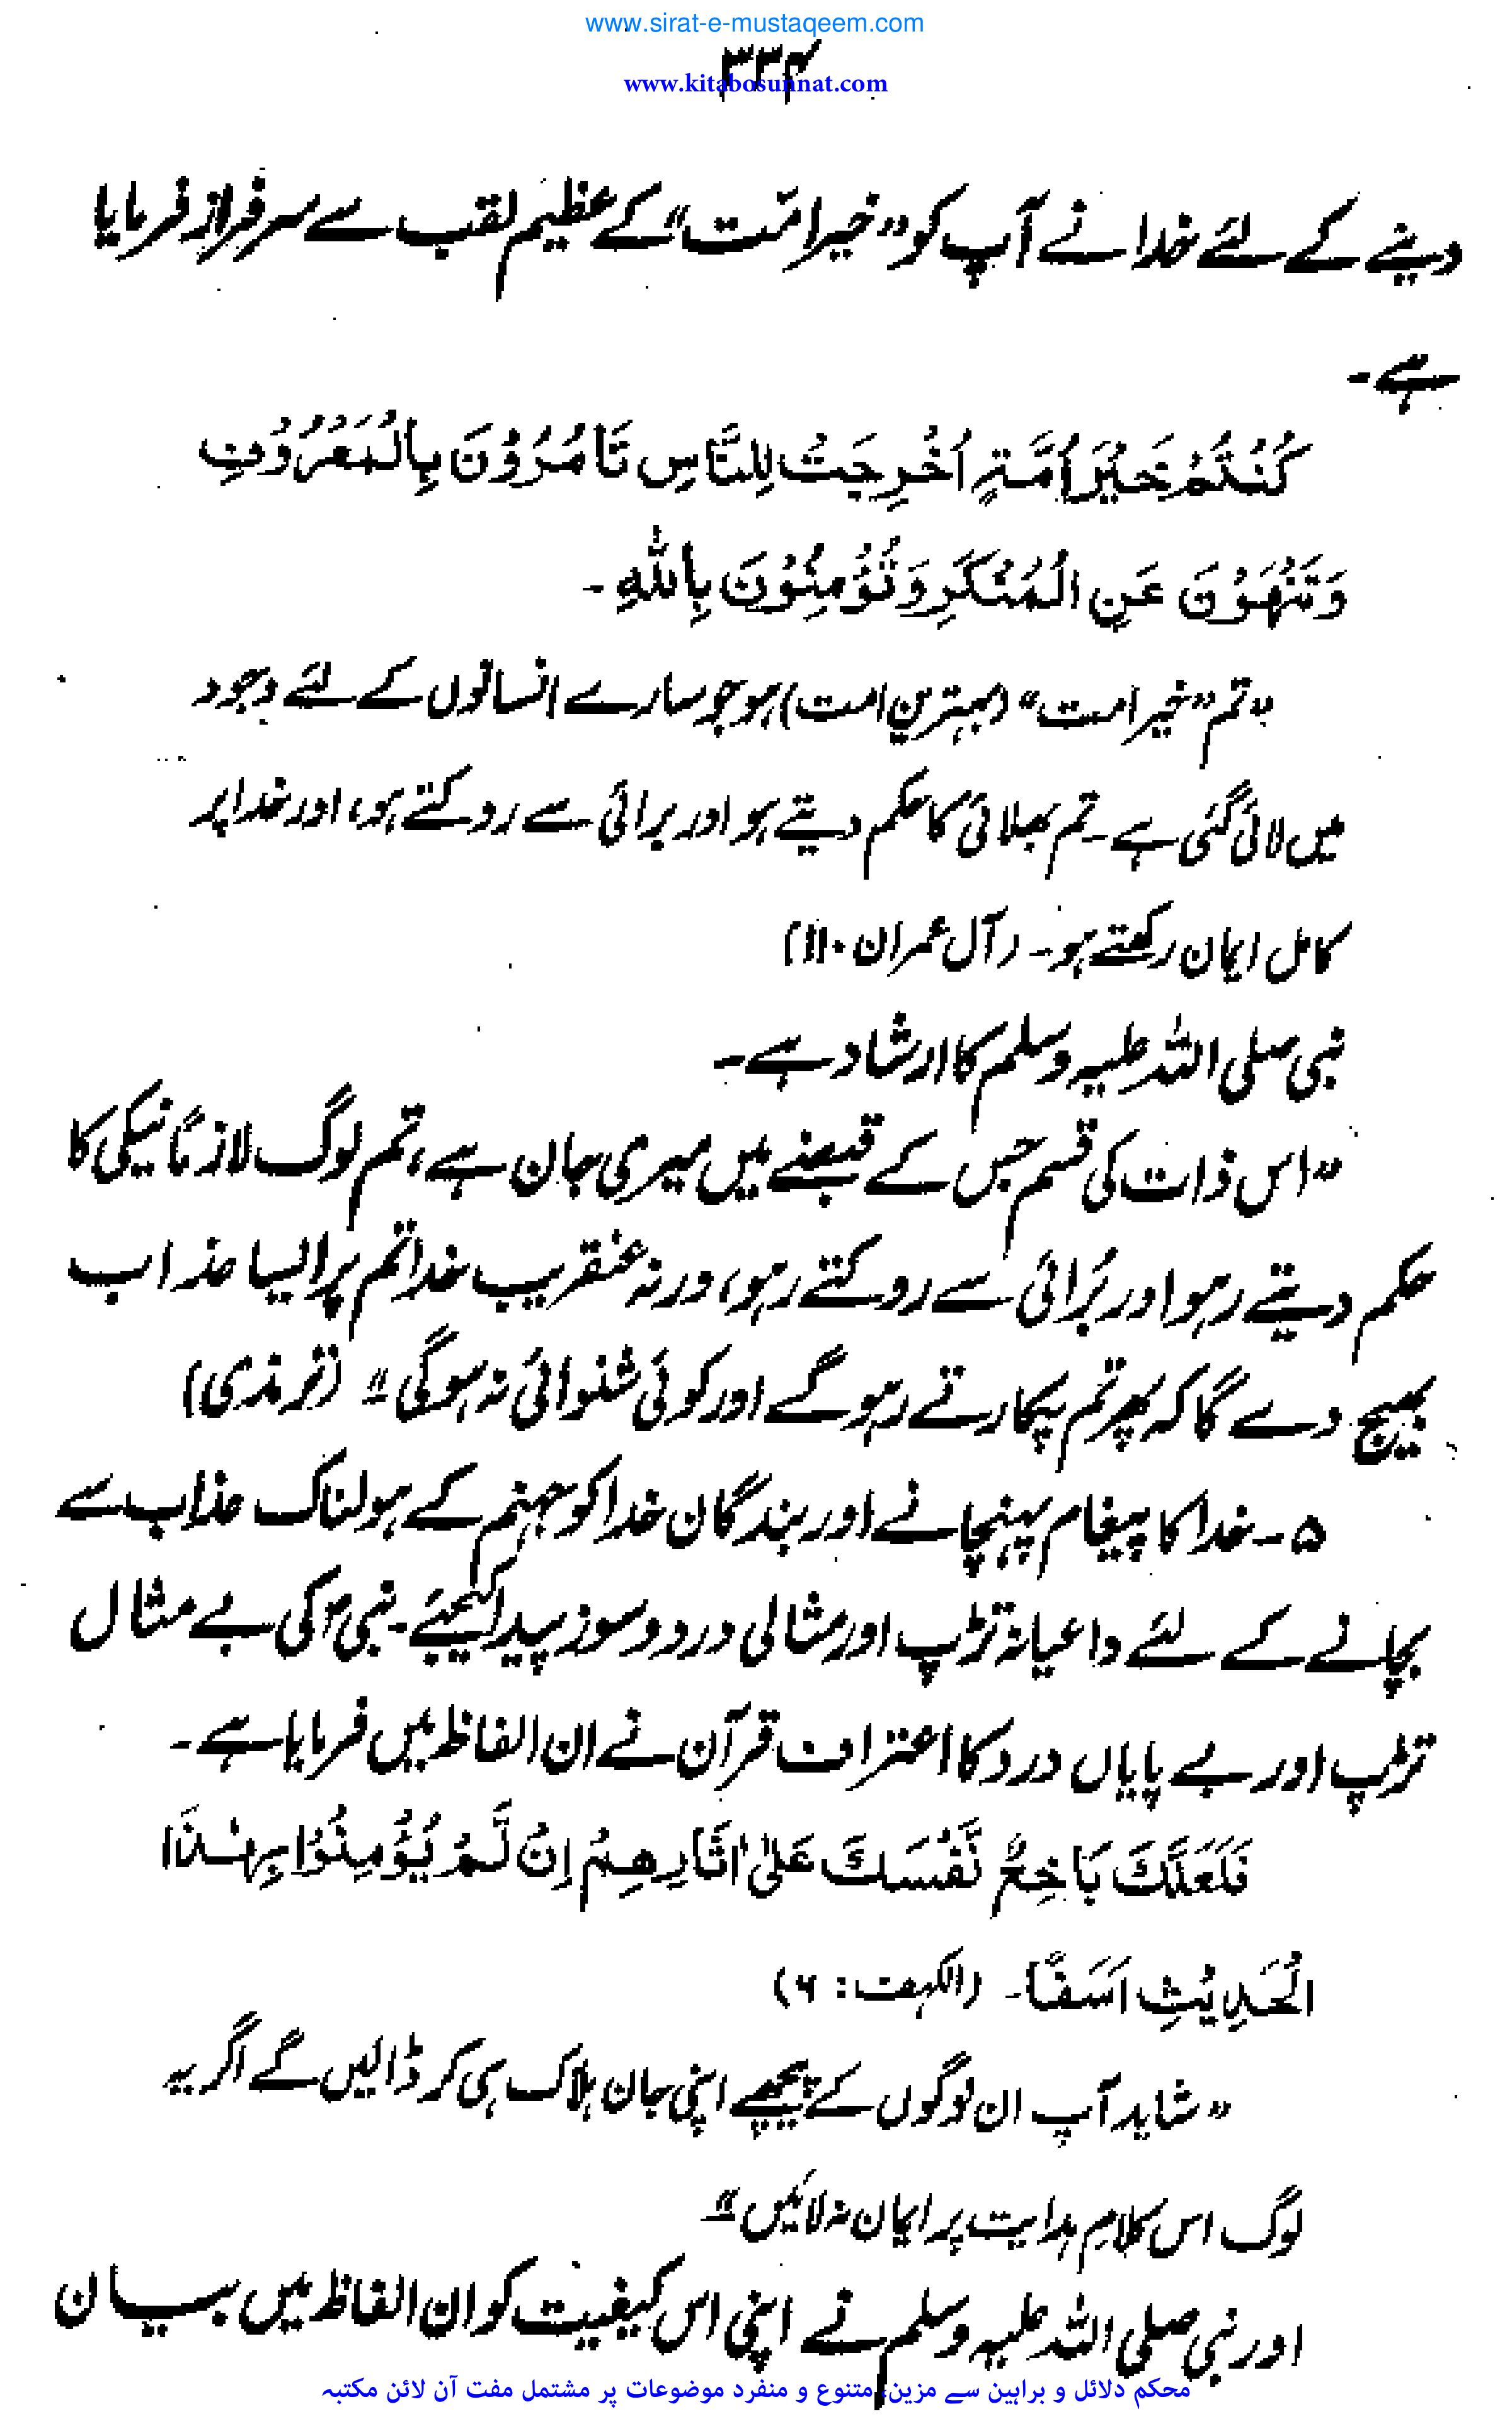 www.sirat-e-mustaqeem.com
۳۳۴
www.kitabosunnat.com
دینے کے لئے خدا نے آپ کو ”خیر امّت“ کے عظیم لقب سے سرفراز فرمایا
ہے۔
كُنْتُمْ خَيْرَ اُمَّةٍ اُخْرِجَتْ لِلنَّاسِ تَامُرُوْنَ بِالْمَعْرُوْفِ
وَتَنْهَوْنَ عَنِ الْمُنْكَرِ وَتُؤْمِنُوْنَ بِاللّٰهِ ۔
”تم ”خیر امت“ (بہترین امت) ہو جو سارے انسانوں کے لئے وجود
میں لائی گئی ہے۔ تم بھلائی کا حکم دیتے ہو اور برائی سے روکتے ہو، اور خدا پر
کامل ایمان رکھتے ہو۔ (آل عمران ۱۱۰)
نبی صلی اللہ علیہ وسلم کا ارشاد ہے۔
”اس ذات کی قسم جس کے قبضے میں میری جان ہے، تم لوگ لازماً نیکی کا
حکم دیتے رہو اور بُرائی سے روکتے رہو، ورنہ عنقریب خدا تم پر ایسا عذاب
بھیج دے گا کہ پھر تم پکارتے رہو گے اور کوئی شنوائی نہ ہوگی“ (ترمذی)
۵۔ خدا کا پیغام پہنچانے اور بندگان خدا کو جہنم کے ہولناک عذاب سے
بچانے کے لئے داعیانہ تڑپ اور مثالی درد و سوز پیدا کیجئے۔ نبیؐ کی بے مثال
تڑپ اور بے پایاں درد کا اعتراف قرآن نے ان الفاظ میں فرمایا ہے۔
فَلَعَلَّكَ بَاخِعٌ نَّفْسَكَ عَلٰى اٰثَارِهِمْ اِنْ لَّمْ يُؤْمِنُوْا بِهٰذَا
الْحَدِيْثِ اَسَفًا۔ (الکہف: ۶)
”شاید آپ ان لوگوں کے پیچھے اپنی جان ہلاک ہی کر ڈالیں گے اگر یہ
لوگ اس کلامِ ہدایت پر ایمان نہ لائیں“
اور نبی صلی اللہ علیہ وسلم نے اپنی اس کیفیت کو ان الفاظ میں بیان
محکم دلائل و براہین سے مزین، متنوع و منفرد موضوعات پر مشتمل مفت آن لائن مکتبہ